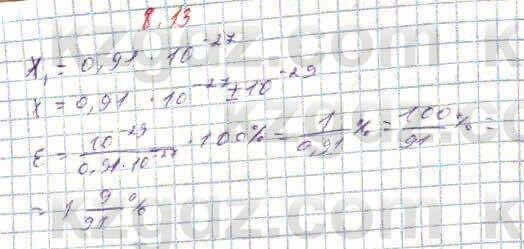 8.13
X₁ = 0,91 · 10⁻²⁷
X = 0,91 · 10⁻²⁷ ± 10⁻²⁹
ε = 10⁻²⁹/0,91·10⁻²⁷ · 100% = 1/0,91 % = 100/91 % =
= 1 9/91 %